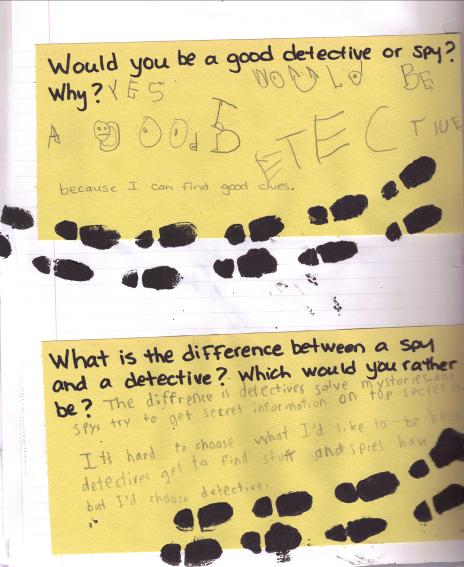 Would you be a good detective or spy?
Why? YES I WOULD BE
A GOOd DETECTIVE
because I can find good clues.
What is the difference between a spy
and a detective? Which would you rather
be? The diffrence is detectives solve mysteries and
spys try to get secret information on top secret
It's hard to choose what I'd like to be
detectives get to find stuff and spies have
but I'd choose detective.